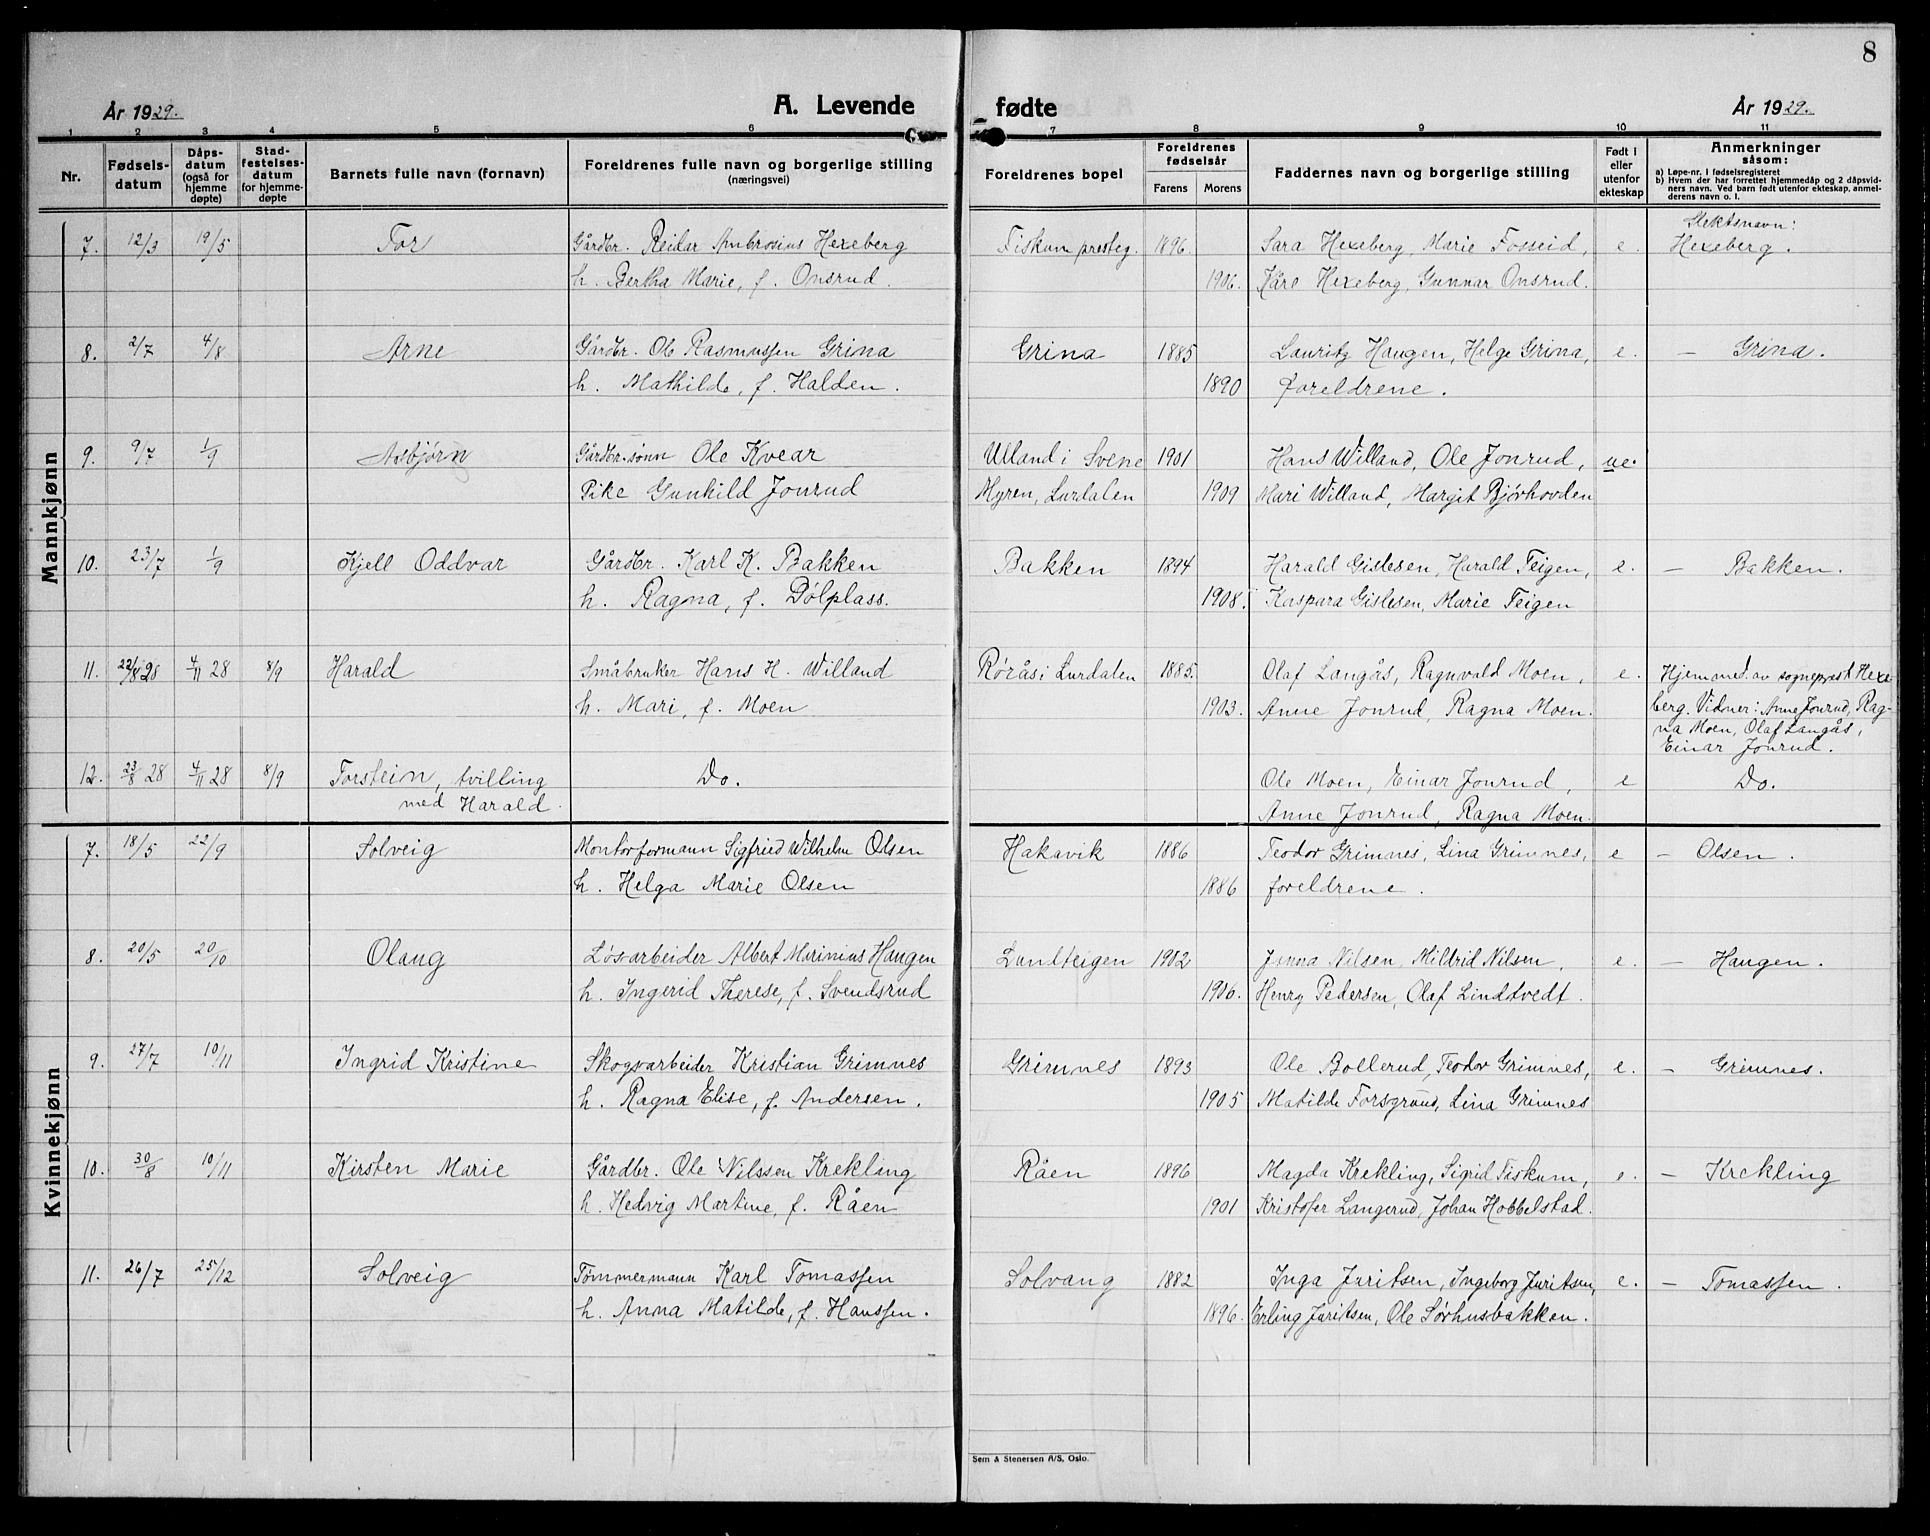 8
År 1929. A. Levende fødte År 1929.
1 2 3 4 5 6 7 8 9 10 11
Nr. Fødselsdatum Dåpsdatum (også for hjemmedøpte) Stadfestelsesdatum for hjemmedøpte Barnets fulle navn (fornavn) Foreldrenes fulle navn og borgerlige stilling (næringsvei) Foreldrenes bopel Foreldrenes fødselsår Farens Morens Faddernes navn og borgerlige stilling Født i eller utenfor ekteskap Anmerkninger såsom: a) Løpe-nr. i fødselsregisteret b) Hvem der har forrettet hjemmedåp og 2 dåpsvidners navn. Ved barn født utenfor ekteskap, anmelderens navn o. l.
Mannkjønn
Slektsnavn:
7. 12/3 19/5 Tor Gårdbr. Reidar Ambrosius Hexeberg Fiskum presteg. 1896. Sara Hexeberg, Marie Fosseid, e. Hexeberg.
h. Bertha Marie, f. Onsrud. 1906. Kåre Hexeberg, Gunnar Onsrud.
8. 2/7 4/8 Arne Gårdbr. Ole Rasmussen Grina Grina 1885 Lauritz Haugen, Helge Grina, e. — Grina.
h. Mathilde, f. Halden. 1890 foreldrene.
9. 9/7 1/9 Asbjørn Gårdbr.sønn Ole Kvear Ulland i Svene 1901 Hans Willand, Ole Jonrud, ue.
Pike Gunhild Jonrud Myren, Lurdalen 1909 Mari Willand, Margit Bjørhovden
10. 23/7 1/9 Kjell Oddvar Gårdbr. Karl K. Bakken Bakken 1894 Harald Gislesen, Harald Teigen, e. — Bakken.
h. Ragna, f. Dølplass. 1908. Kaspara Gislesen, Marie Teigen
11. 22/8 28 4/11 28 8/9 Harald Småbruker Hans H. Willand Rørås i Lurdalen 1885. Olaf Langås, Ragnvald Moen, e. Hjemmed. av sogneprest Hexe-
h. Mari, f. Moen 1903. Anne Jonrud, Ragna Moen. berg. Vidner: Anne Jonrud, Rag-
na Moen, Olaf Langås,
Einar Jonrud.
12. 23/8 28 4/11 28 8/9 Torstein, tvilling Do. Ole Moen, Einar Jonrud, e Do.
med Harald. Anne Jonrud, Ragna Moen.
Kvinnekjønn
7. 18/5 22/9 Solveig Montørformann Sigfried Wilhelm Olsen Hakavik 1886 Teodor Grimnes, Lina Grimnes, e — Olsen.
h. Helga Marie Olsen 1886 foreldrene.
8. 20/5 20/10 Olaug Løsarbeider Albert Marinius Haugen Lundteigen 1902 Jenna Nilsen, Mildrid Nilsen, e. — Haugen.
h. Ingerid Therese, f. Svendsrud 1906. Henry Pedersen, Olaf Lindtvedt.
9. 27/7 10/11 Ingrid Kristine Skogsarbeider Kristian Grimnes Grimnes 1893 Ole Bollerud, Teodor Grimnes, e. — Grimnes.
h. Ragna Elise, f. Andersen. 1905 Matilde Forsgrund, Lina Grimnes
10. 30/8 10/11 Kirsten Marie Gårdbr. Ole Nilssen Krekling Råen 1896 Magda Krekling, Sigrid Fiskum, e. — Krekling
h. Hedvig Martine, f. Råen 1901 Kristofer Langerud, Johan Hobbelstad.
11. 26/7 25/12 Solveig Tømmermann Karl Tomassen Solvang 1882 Inga Juritsen, Ingeborg Juritsen, e. — Tomassen.
h. Anna Matilde, f. Hanssen. 1896. Erling Juritsen, Ole Sørhusbakken.
Sem & Stenersen A/S, Oslo.